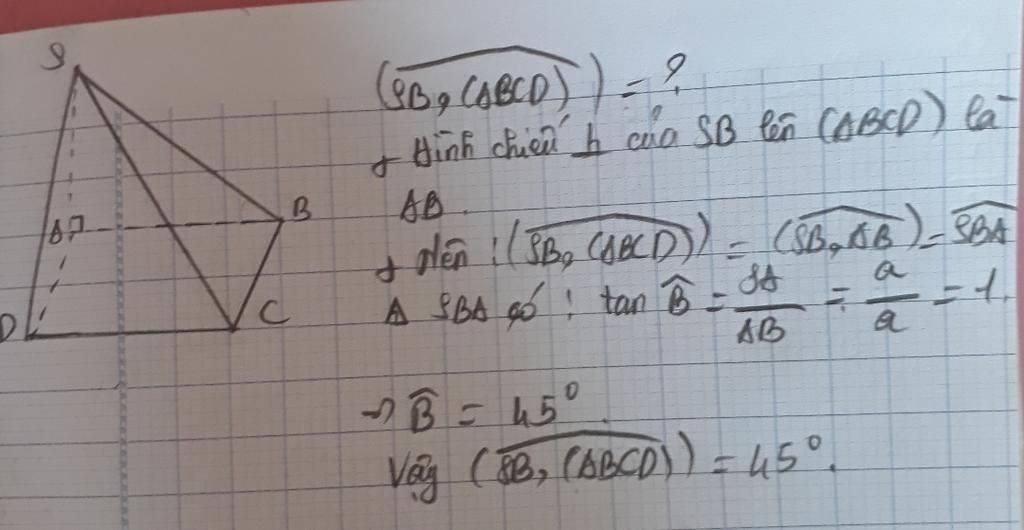 S
A
B
D
C
(SB, (ABCD)) = ?
+ Hình chiếu h của SB lên (ABCD) là
AB.
+ Nên : (SB, (ABCD)) = (SB, AB) = SBA
Δ SBA có : tan B̂ = SA/AB = a/a = 1.
→ B̂ = 45°.
Vậy (SB, (ABCD)) = 45°.